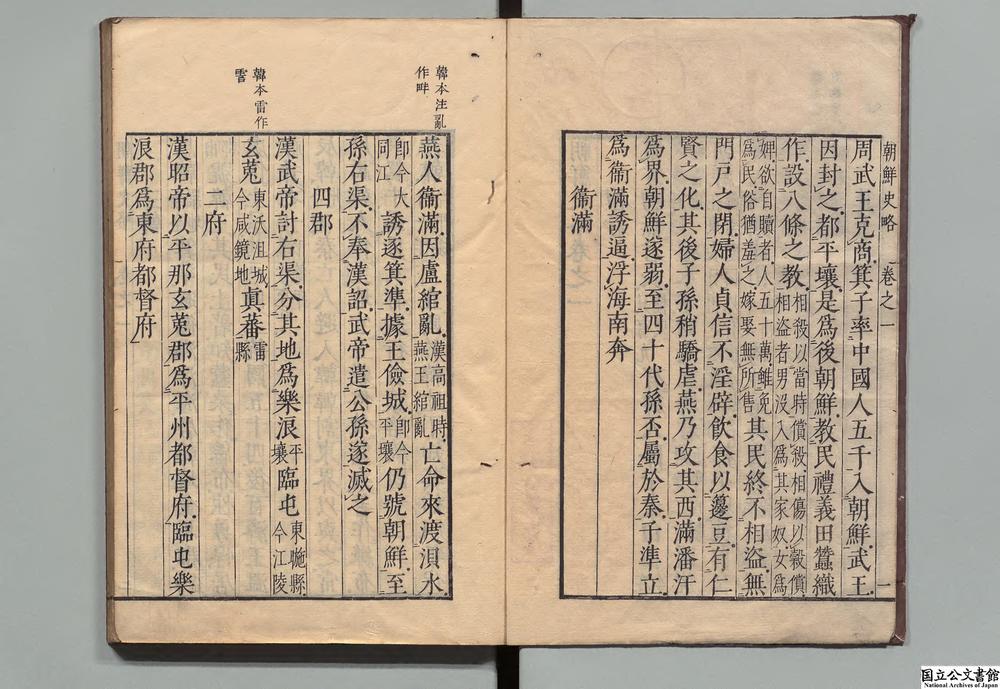 朝鮮史略 卷之一 一
周武王克商箕子率中國人五千入朝鮮武王
因封之都平壤是爲後朝鮮教民禮義田蠶織
作設八條之教相殺以當時償殺相傷以穀償
相盜者男沒入爲其家奴女爲
婢欲自贖者人五十萬雖免
爲民俗猶羞之嫁娶無所售其民終不相盜無
門戸之閉婦人貞信不淫辟飮食以籩豆有仁
賢之化其後子孫稍驕虐燕乃攻其西滿潘汗
爲界朝鮮遂弱至四十代孫否屬於秦子準立
爲衞滿誘逼浮海南奔
衞滿
韓本注亂
作畔
燕人衞滿因盧綰亂漢高祖時
燕王綰亂亡命來渡浿水
卽今大
同江誘逐箕準據王儉城卽今
平壤仍號朝鮮至
孫右渠不奉漢詔武帝遣公孫遂滅之
四郡
漢武帝討右渠分其地爲樂浪平
壤臨屯東暆縣
今江陵
韓本雷作
霅
玄菟東沃沮城
今咸鏡地眞蕃雷
縣
二府
漢昭帝以平那玄菟郡爲平州都督府臨屯樂
浪郡爲東府都督府
国立公文書館
National Archives of Japan